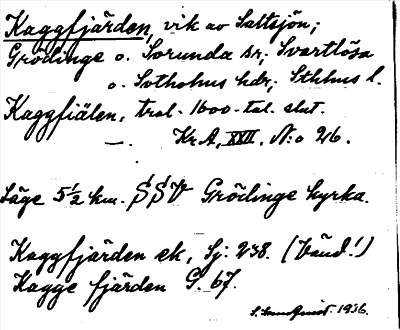 Kaggfjärden, vik av Saltsjön;
Grödinge o. Sorunda sr; Svartlösa
o. Sotholms hdr; Sthlms l.
Kaggfiälen, trol. 1600-tal. slut.
—. Kr.A, XXII. N:o 26.
Läge 5½ km. SSV Grödinge kyrka.
Kaggfjärden ek, Sj: 238. (Vänd!)
Kagge fjärden G. 67.
1936.